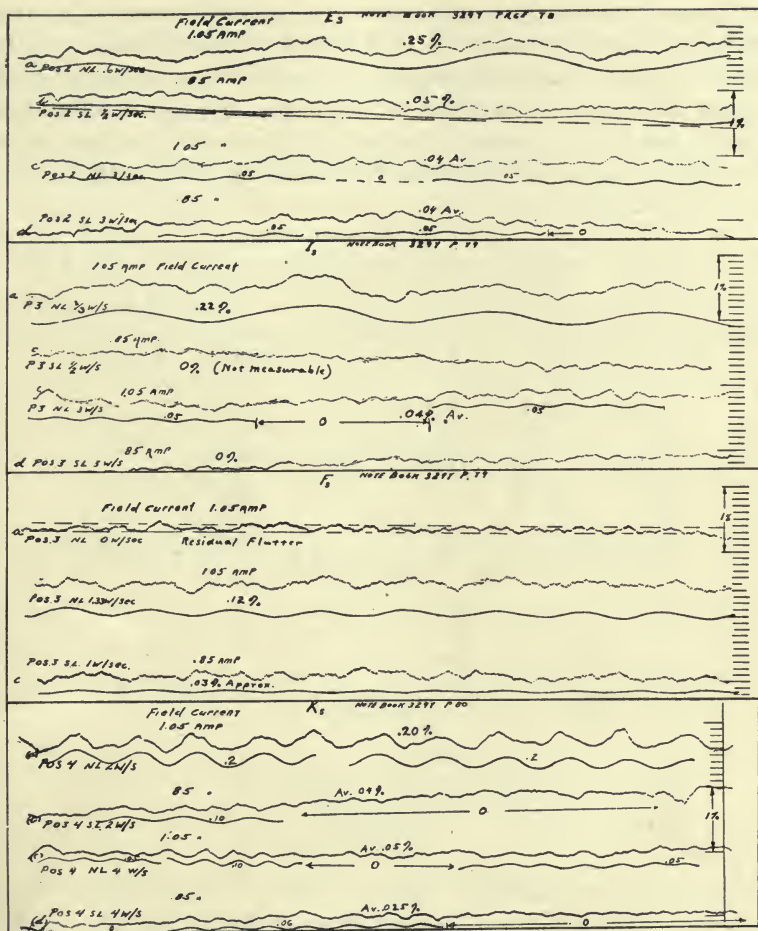 Es NOTE BOOK 3297 PAGE 78
Field Current
1.05 AMP
.25%
a POS 2 NL .6W/sec
.85 AMP
b .05 %
POS 2 SL ½ W/sec.
1%
1.05 "
c .04 Av
POS 2 NL 3/sec. .05 0 .05
.85 "
POS 2 SL 3W/sec .04 Av.
d .05 .05 0
Is NOTE BOOK 3297 P. 79
1.05 AMP Field Current
1%
a
P3 NL ⅓ W/S .22%
.85 AMP.
P3 SL ½ W/S 0% (Not measurable)
1.05 AMP
P3 NL 3W/S .04% Av.
.05 0 .05
.85 AMP
d POS 3 SL 3W/S 0%
Fs NOTE BOOK 3297 P. 79
Field Current 1.05 AMP
1%
a
POS.3 NL 0W/sec Residual Flutter
1.05 AMP
POS.3 NL 1.33W/sec .12%
POS.3 SL. 1W/sec. .85 AMP
c .03% Approx.
Ks NOTE BOOK 3297 P. 80
Field Current
1.05 AMP .20%
(a)
POS 4 NL 2W/S .2 .2
.85 " Av. .04%
(b) 0
POS 4 SL 2W/S .10
1%
1.05 " Av. .05%
(c) .05 .10 0 .05
POS 4 NL 4 W/S
.85 "
POS 4 SL 4W/S Av. .025%
(d) 0 .06 0